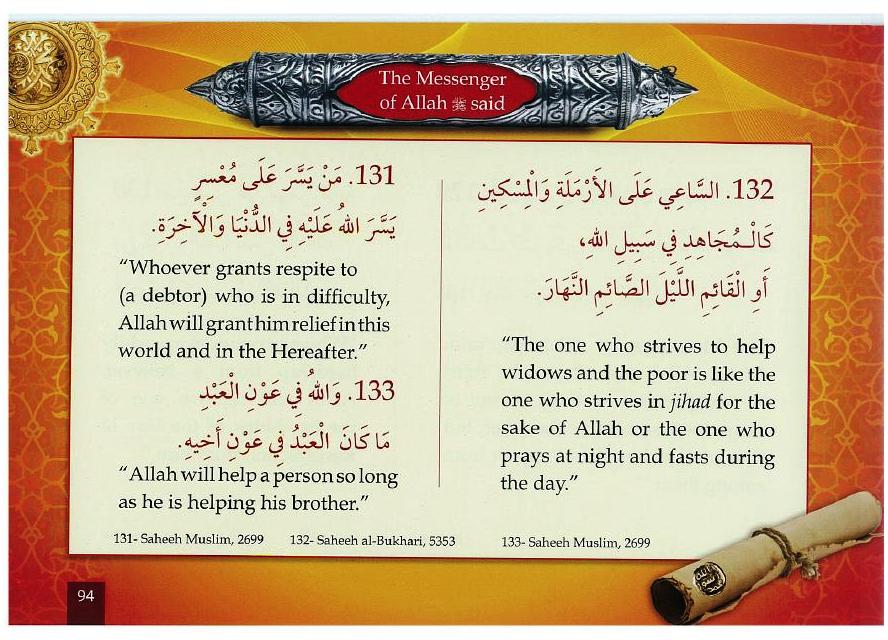 The Messenger
of Allah ﷺ said
131. مَنْ يَسَّرَ عَلَى مُعْسِرٍ
يَسَّرَ اللهُ عَلَيْهِ فِي الدُّنْيَا وَالْآخِرَةِ.
“Whoever grants respite to
(a debtor) who is in difficulty,
Allah will grant him relief in this
world and in the Hereafter.”
133. وَاللهُ فِي عَوْنِ الْعَبْدِ
مَا كَانَ الْعَبْدُ فِي عَوْنِ أَخِيهِ.
“Allah will help a person so long
as he is helping his brother.”
132. السَّاعِي عَلَى الأَرْمَلَةِ وَالْمِسْكِينِ
كَالْـمُجَاهِدِ فِي سَبِيلِ اللهِ،
أَوِ الْقَائِمِ اللَّيْلَ الصَّائِمِ النَّهَارَ.
“The one who strives to help
widows and the poor is like the
one who strives in jihad for the
sake of Allah or the one who
prays at night and fasts during
the day.”
131- Saheeh Muslim, 2699 132- Saheeh al-Bukhari, 5353 133- Saheeh Muslim, 2699
الله
رسول
محمد
94